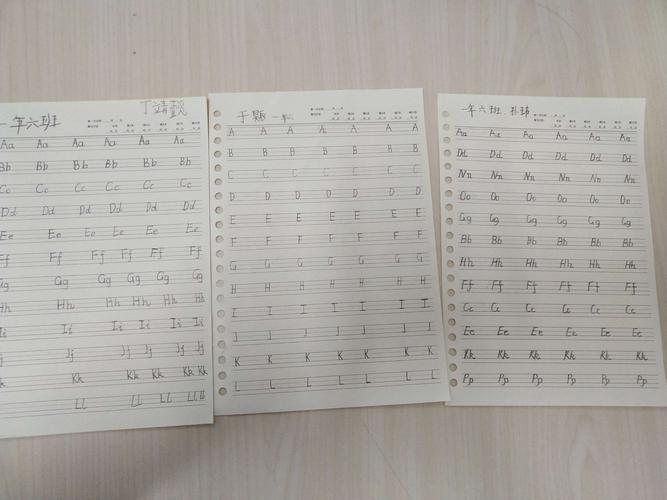 一年六班
Aa Aa Aa Aa Aa Aa
Bb Bb Bb Bb Bb
Cc Cc Cc Cc Cc
Dd Dd Dd Dd Dd
Ee Ee Ee Ee Ee Ee
Ff Ff Ff Ff Ff Ff
Gg Gg Gg Gg Gg Gg
Hh Hh Hh Hh Hh Hh
Ii Ii Ii Ii Ii Ii
Jj Jj Jj Jj Jj Jj
Kk Kk Kk Kk Kk Kk
LL LL LL LL
A A A A A A A
B B B B B B B
C C C C C C C
D D D D D D D
E E E E E E E
F F F F F F F
G G G G G G G
H H H H H H H
I I I I I I I
J J J J J J J
K K K K K K K
L L L L L L L
一年六班
Aa Aa Aa Aa Aa Aa
Dd Dd Dd Dd Dd Dd
Nn Nn Nn Nn Nn Nn
Oo Oo Oo Oo Oo Oo
Gg Gg Gg Gg Gg Gg
Bb Bb Bb Bb Bb Bb
Hh Hh Hh Hh Hh Hh
Ff Ff Ff Ff Ff Ff
Cc Cc Cc Cc Cc Cc
Ee Ee Ee Ee Ee Ee
Kk Kk Kk Kk Kk Kk
Pp Pp Pp Pp Pp Pp